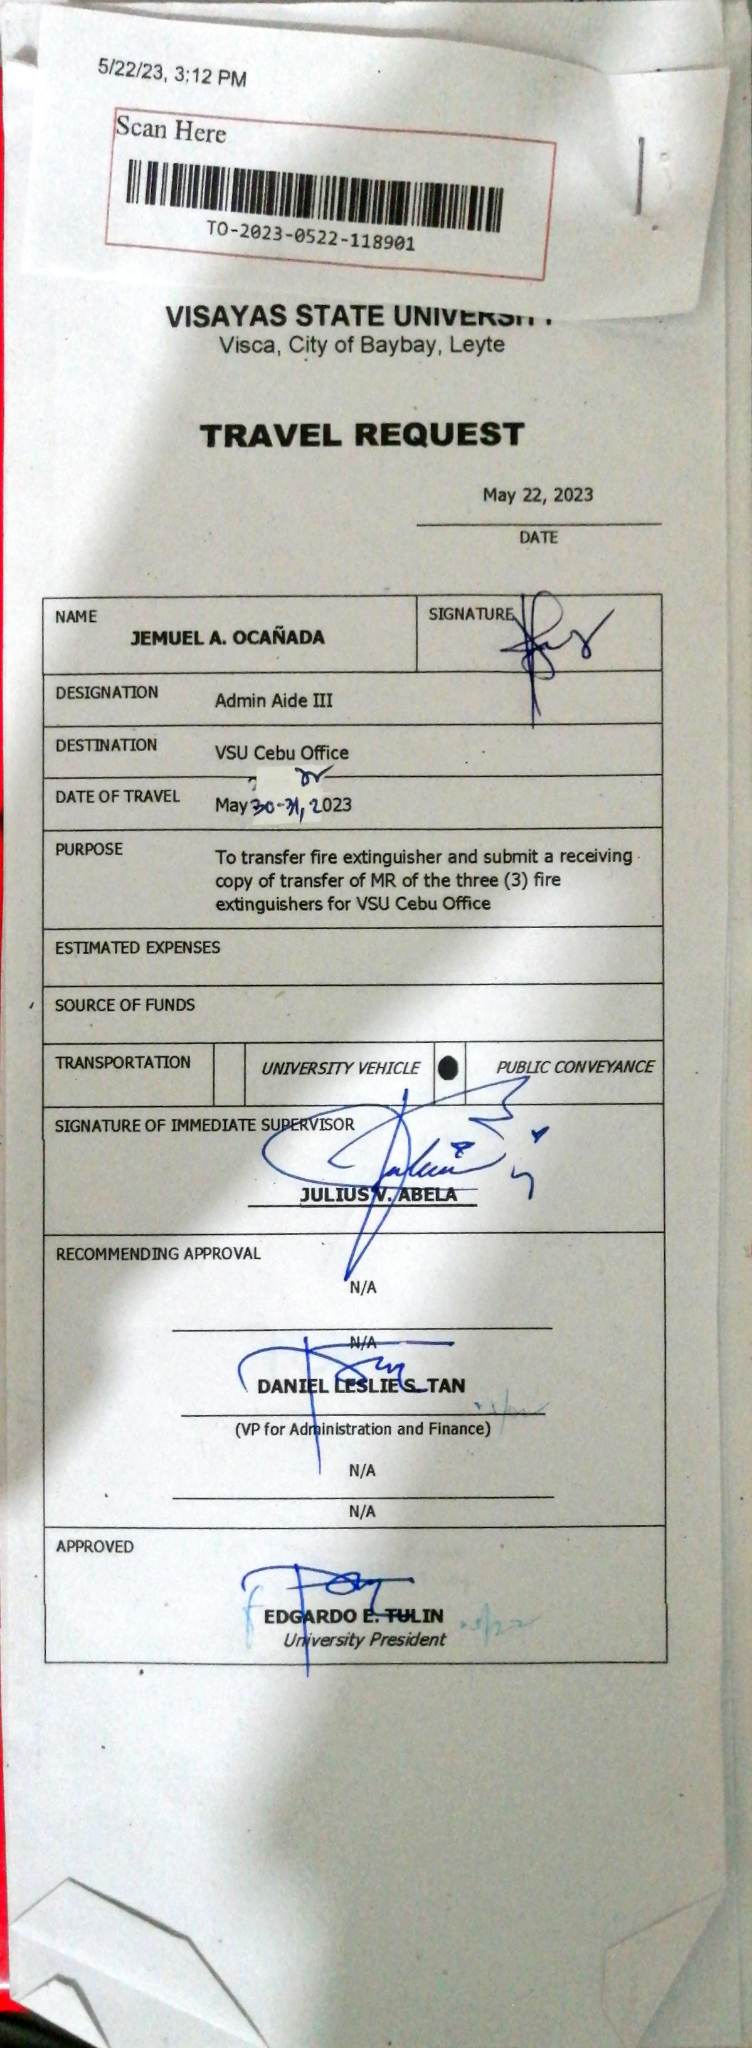 5/22/23, 3:12 PM
Scan Here
TO-2023-0522-118901
VISAYAS STATE UNIVERSITY
Visca, City of Baybay, Leyte
TRAVEL REQUEST
May 22, 2023
DATE
NAME
JEMUEL A. OCAÑADA
SIGNATURE
DESIGNATION
Admin Aide III
DESTINATION
VSU Cebu Office
DATE OF TRAVEL
May 30-31, 2023
PURPOSE
To transfer fire extinguisher and submit a receiving
copy of transfer of MR of the three (3) fire
extinguishers for VSU Cebu Office
ESTIMATED EXPENSES
SOURCE OF FUNDS
TRANSPORTATION
UNIVERSITY VEHICLE
PUBLIC CONVEYANCE
SIGNATURE OF IMMEDIATE SUPERVISOR
JULIUS V. ABELA
RECOMMENDING APPROVAL
N/A
N/A
DANIEL LESLIE S. TAN
(VP for Administration and Finance)
N/A
N/A
APPROVED
EDGARDO E. TULIN
University President